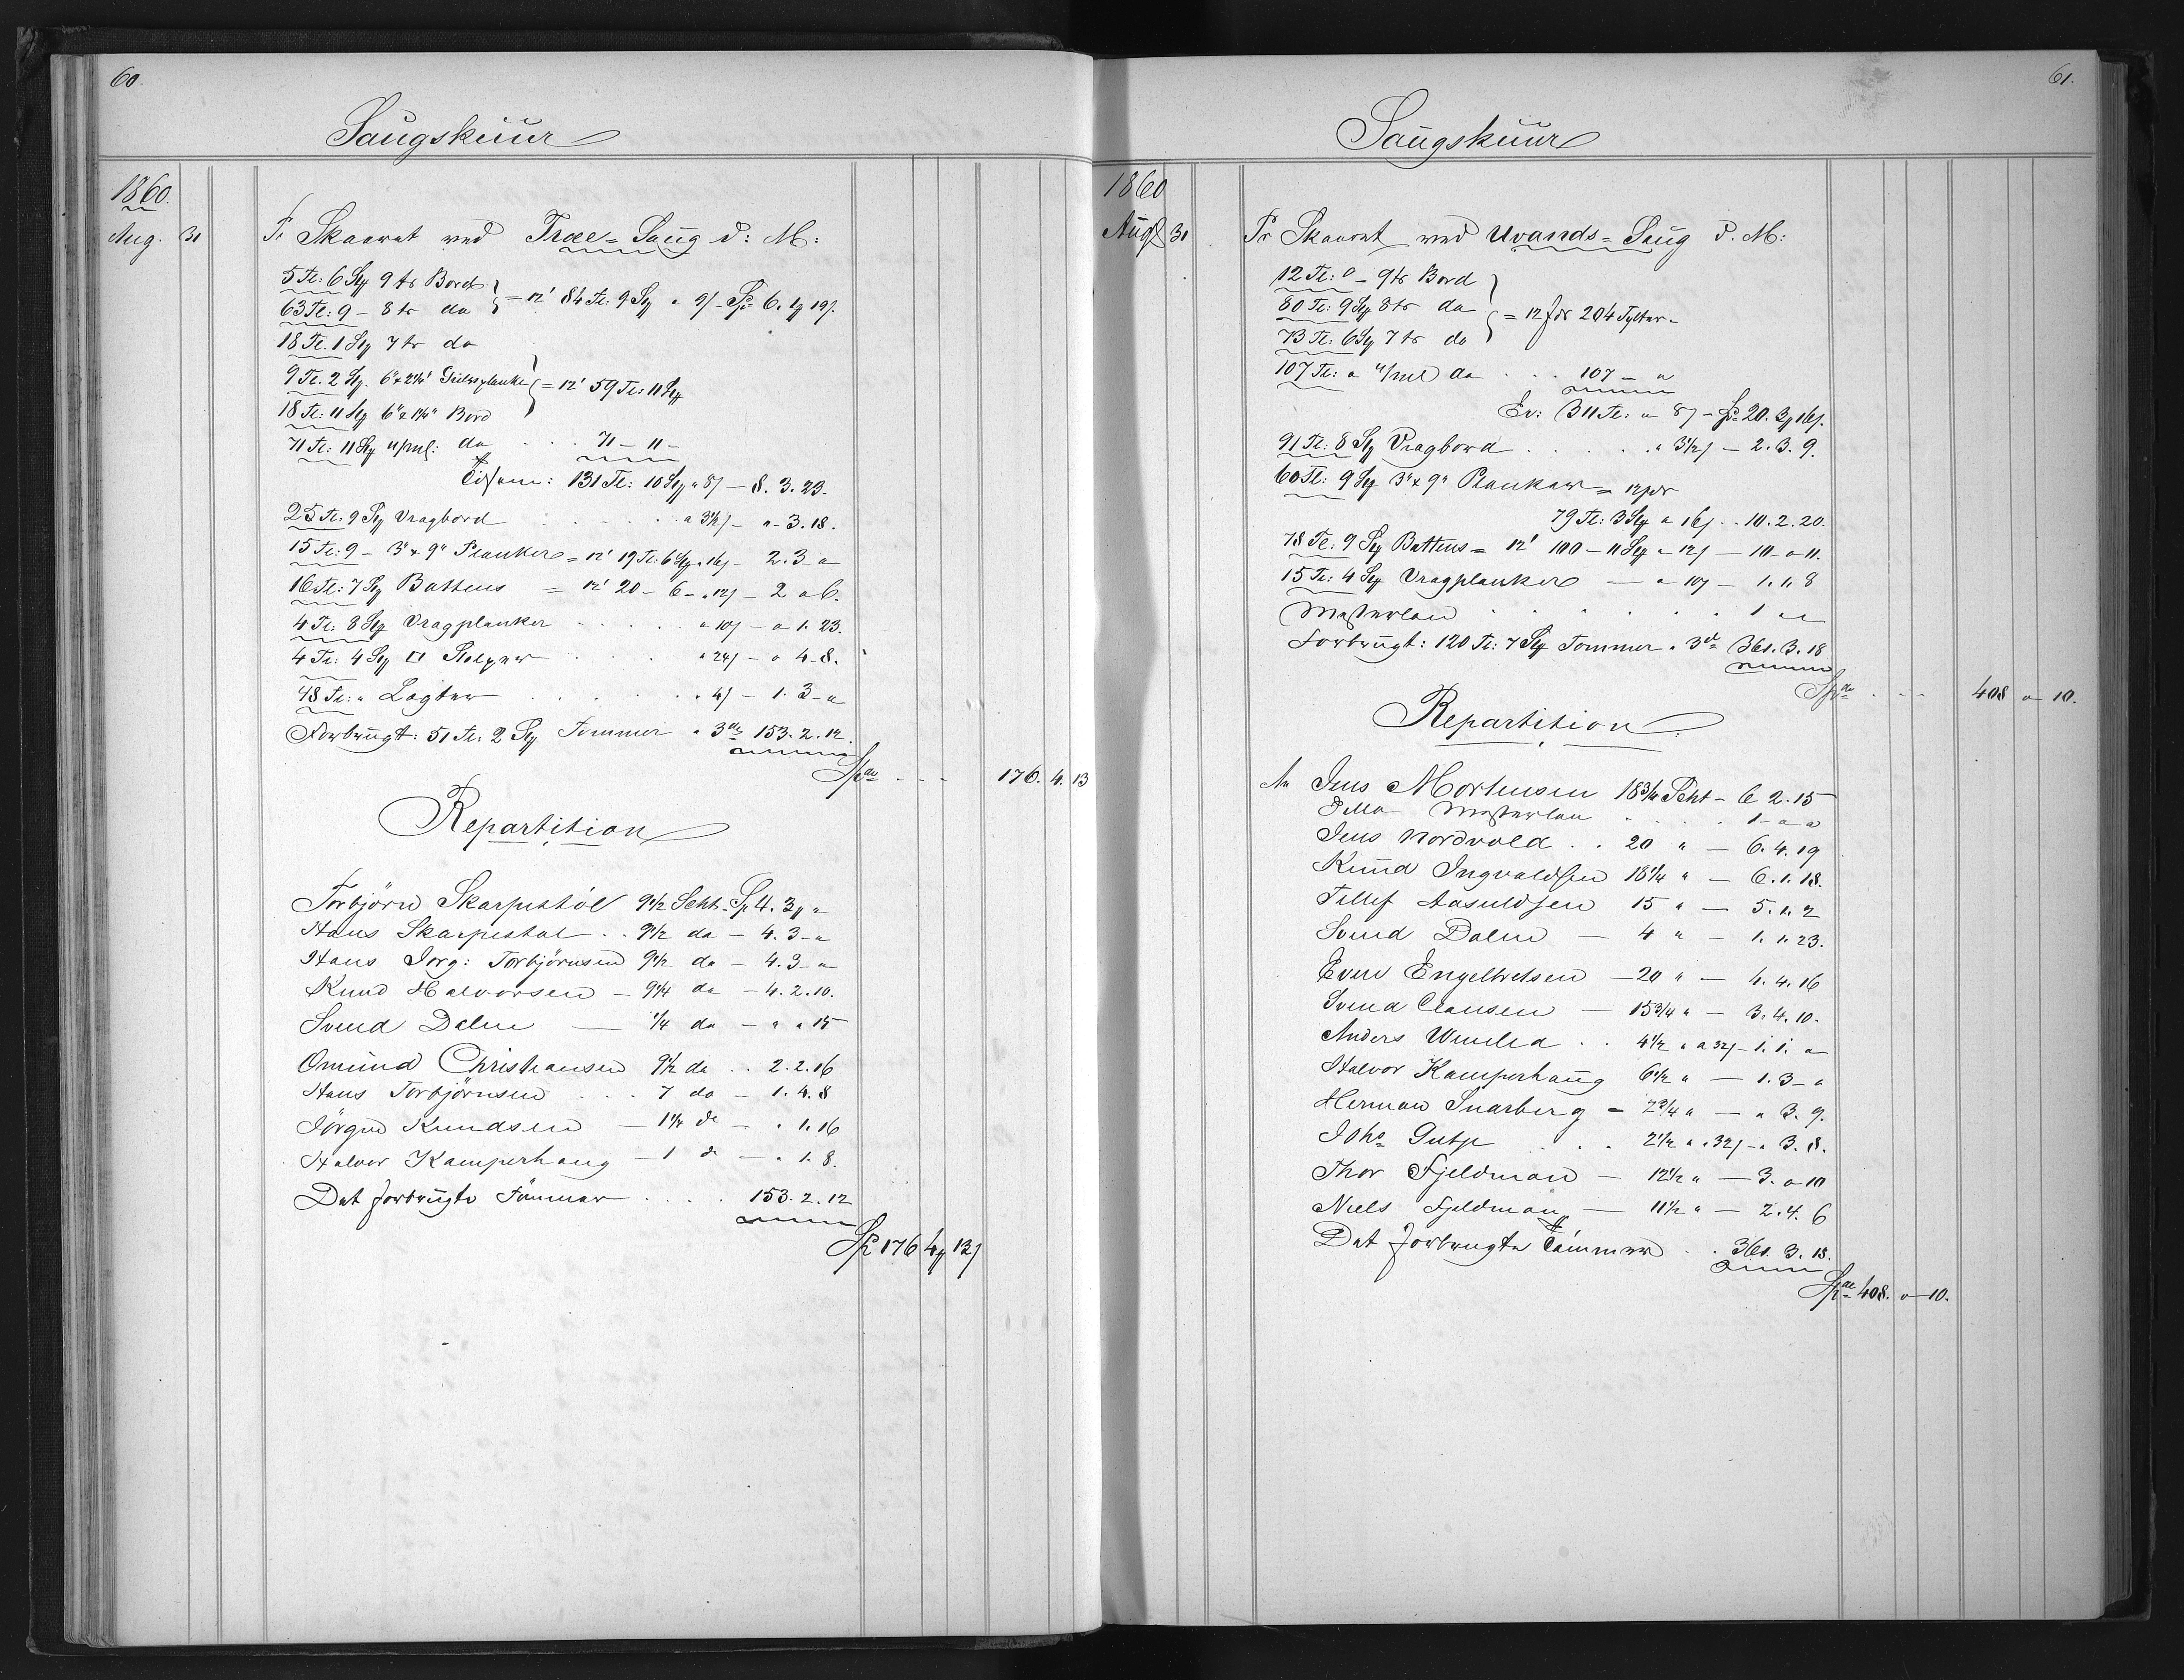 60.
Saugskuur
1860.
Aug. 31 Pr Skaaret ved Træe-Saug d: M:
5 Tl: 6 Stk 9 ts Bord
63 Tl: 9 - 8 ts do } = 12' 84 Tl: 9 Stk a 9/ - Sp 6. 1 19/.
18 Tl. 1 Stk 7 ts do
9 Tl. 2 Stk. 6" x 2 1/4" Gulvsplanke } = 12' 59 Tl: 11 Stk
18 Tl: 11 Stk 6" x 1 1/4" Bord
71 Tl: 11 Stk u/ml: do . . . 71 - 11 -
Tilsam: 131 Tl: 10 Stk a 8/ - 8. 3. 23.
25 Tl: 9 Stk Vragbord . . . . . a 3 1/2/ - " 3. 18.
15 Tl: 9 - 3" x 9" Planker = 12' 19 Tl: 6 Stk a 16/ - 2. 3 - "
16 Tl: 7 Stk Battens = 12' 20 - 6 - a 12/ - 2 " 6.
4 Tl: 8 Stk Vragplanker . . . . . a 10/ - " 1. 23.
4 Tl: 4 Stk □ Stolper . . . . a 24/ - " 4. 8.
48 Tl: " Lægter . . . . . a 4/ - 1. 3 - "
Forbrugt: 51 Tl: 2 Stk Tømmer a 3 153. 2. 12.
Sp . . . 176. 4. 13
Repartition
Torbjörn Skarpestöl 9 1/2 Scht - Sp 4. 3 "
Hans Skarpestøl . . 9 1/2 do - 4. 3 - "
Hans Jørg: Torbjörnsen 9 1/2 do - 4. 3 - "
Knud Halvorsen - 9 1/4 do - 4. 2. 10.
Svend Dalen — 1/4 do - " " 15
Omund Christiansen 9 1/2 do . . 2. 2. 16
Hans Torbjörnsen . . . 7 do - 1. 4. 8
Jörgen Knudsen - 1 1/4 do - " 1. 16
Halvor Kamperhaug - 1 do - " 1. 8.
Det forbrugte Tömmer . . . . 153. 2. 12
Sp 176 4 13/
61.
Saugskuur
1860
Aug 31 Pr Skaaret ved Uvands-Saug d. M:
12 Tl: 0 - 9 ts Bord
80 Tl: 9 Stk 8 ts do } = 12 fds 204 Tylter -
73 Tl: 6 Stk 7 ts do
107 Tl: " u/ml do . . . 107 - "
Er: 311 Tl: a 8/ - Sp 20. 3 16/.
91 Tl: 8 Stk Vragbord . . . . . a 3 1/2/ - 2. 3. 9.
60 Tl: 9 Stk 3" x 9" Planker = 12 fds
79 Tl: 3 Stk a 16/ . . 10. 2. 20.
78 Tl: 9 Stk Battens = 12' 100 - 11 Stk a 12/ — 10 - " 11.
15 Tl: 4 Stk Vragplanker — a 10/ - 1. 1. 8
Mesterløn . . . . . . 1 " "
Forbrugt: 120 Tl: 7 Stk Tømmer a 3 361. 3. 18
Sp . . . 408 " 10.
Repartition
An Jens Mortensen 18 3/4 Scht - 6 2. 15
Ditto Mesterløn . . . . 1 - " "
Jens Nordvold . . 20 " - 6. 4. 19
Knud Ingvaldsen 18 1/4 " - 6. 1. 18.
Tellef Aasuldsen 15 " - 5. 1. 2
Svend Dalen — 4 " - 1. 1. 23.
Even Engelbretsen - 20 " - 4. 4. 16
Svend Clausen - 15 3/4 " - 3. 4. 10.
Anders . . 4 1/2 " a 32/ - 1. 1. "
Halvor Kamperhaug 6 1/2 " - 1. 3 - "
Herman Snarberg - 2 3/4 " - " 3. 9.
Johs . . . 2 1/2 " a 32/ - " 3. 8.
Thor Fjeldman - 12 1/2 " - 3. " 10
Niels Fjeldman — 11 1/2 " - 2. 4. 6
Det forbrugte Tömmer . . 361. 3. 18.
Sp 408. " 10.